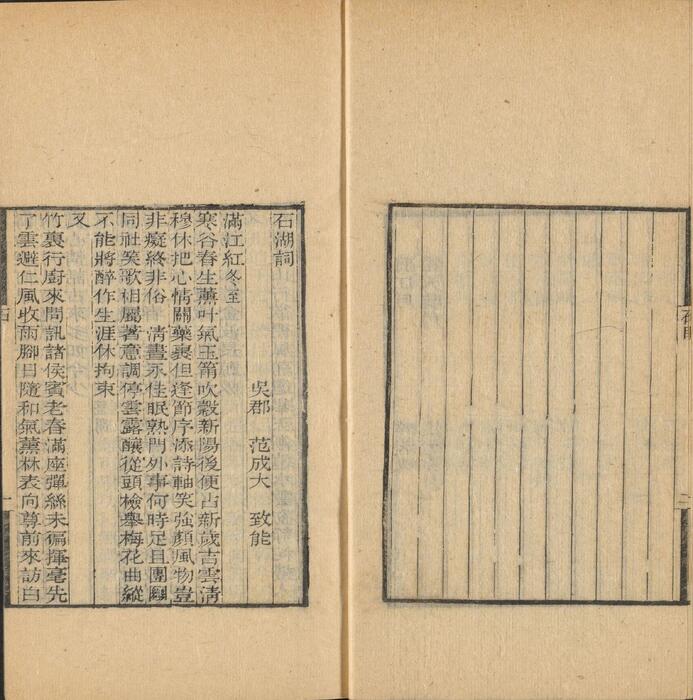 石湖詞
吳郡 范成大 致能
滿江紅冬至
寒谷春生薰叶氣玉筩吹穀新陽後便占新歲吉雲淸
穆休把心情關藥裹但逢節序添詩軸笑強顏風物豈
非癡終非俗 淸晝永佳眠熟門外事何時足且團圞
同社笑歌相屬著意調停雲露釀從頭檢舉梅花曲縱
不能將醉作生涯休拘束
又
竹裏行廚來問訊諸侯賓老春滿座彈絲未徧揮毫先
了雲避仁風收雨腳日隨和氣薰林表向尊前來訪白
石
一